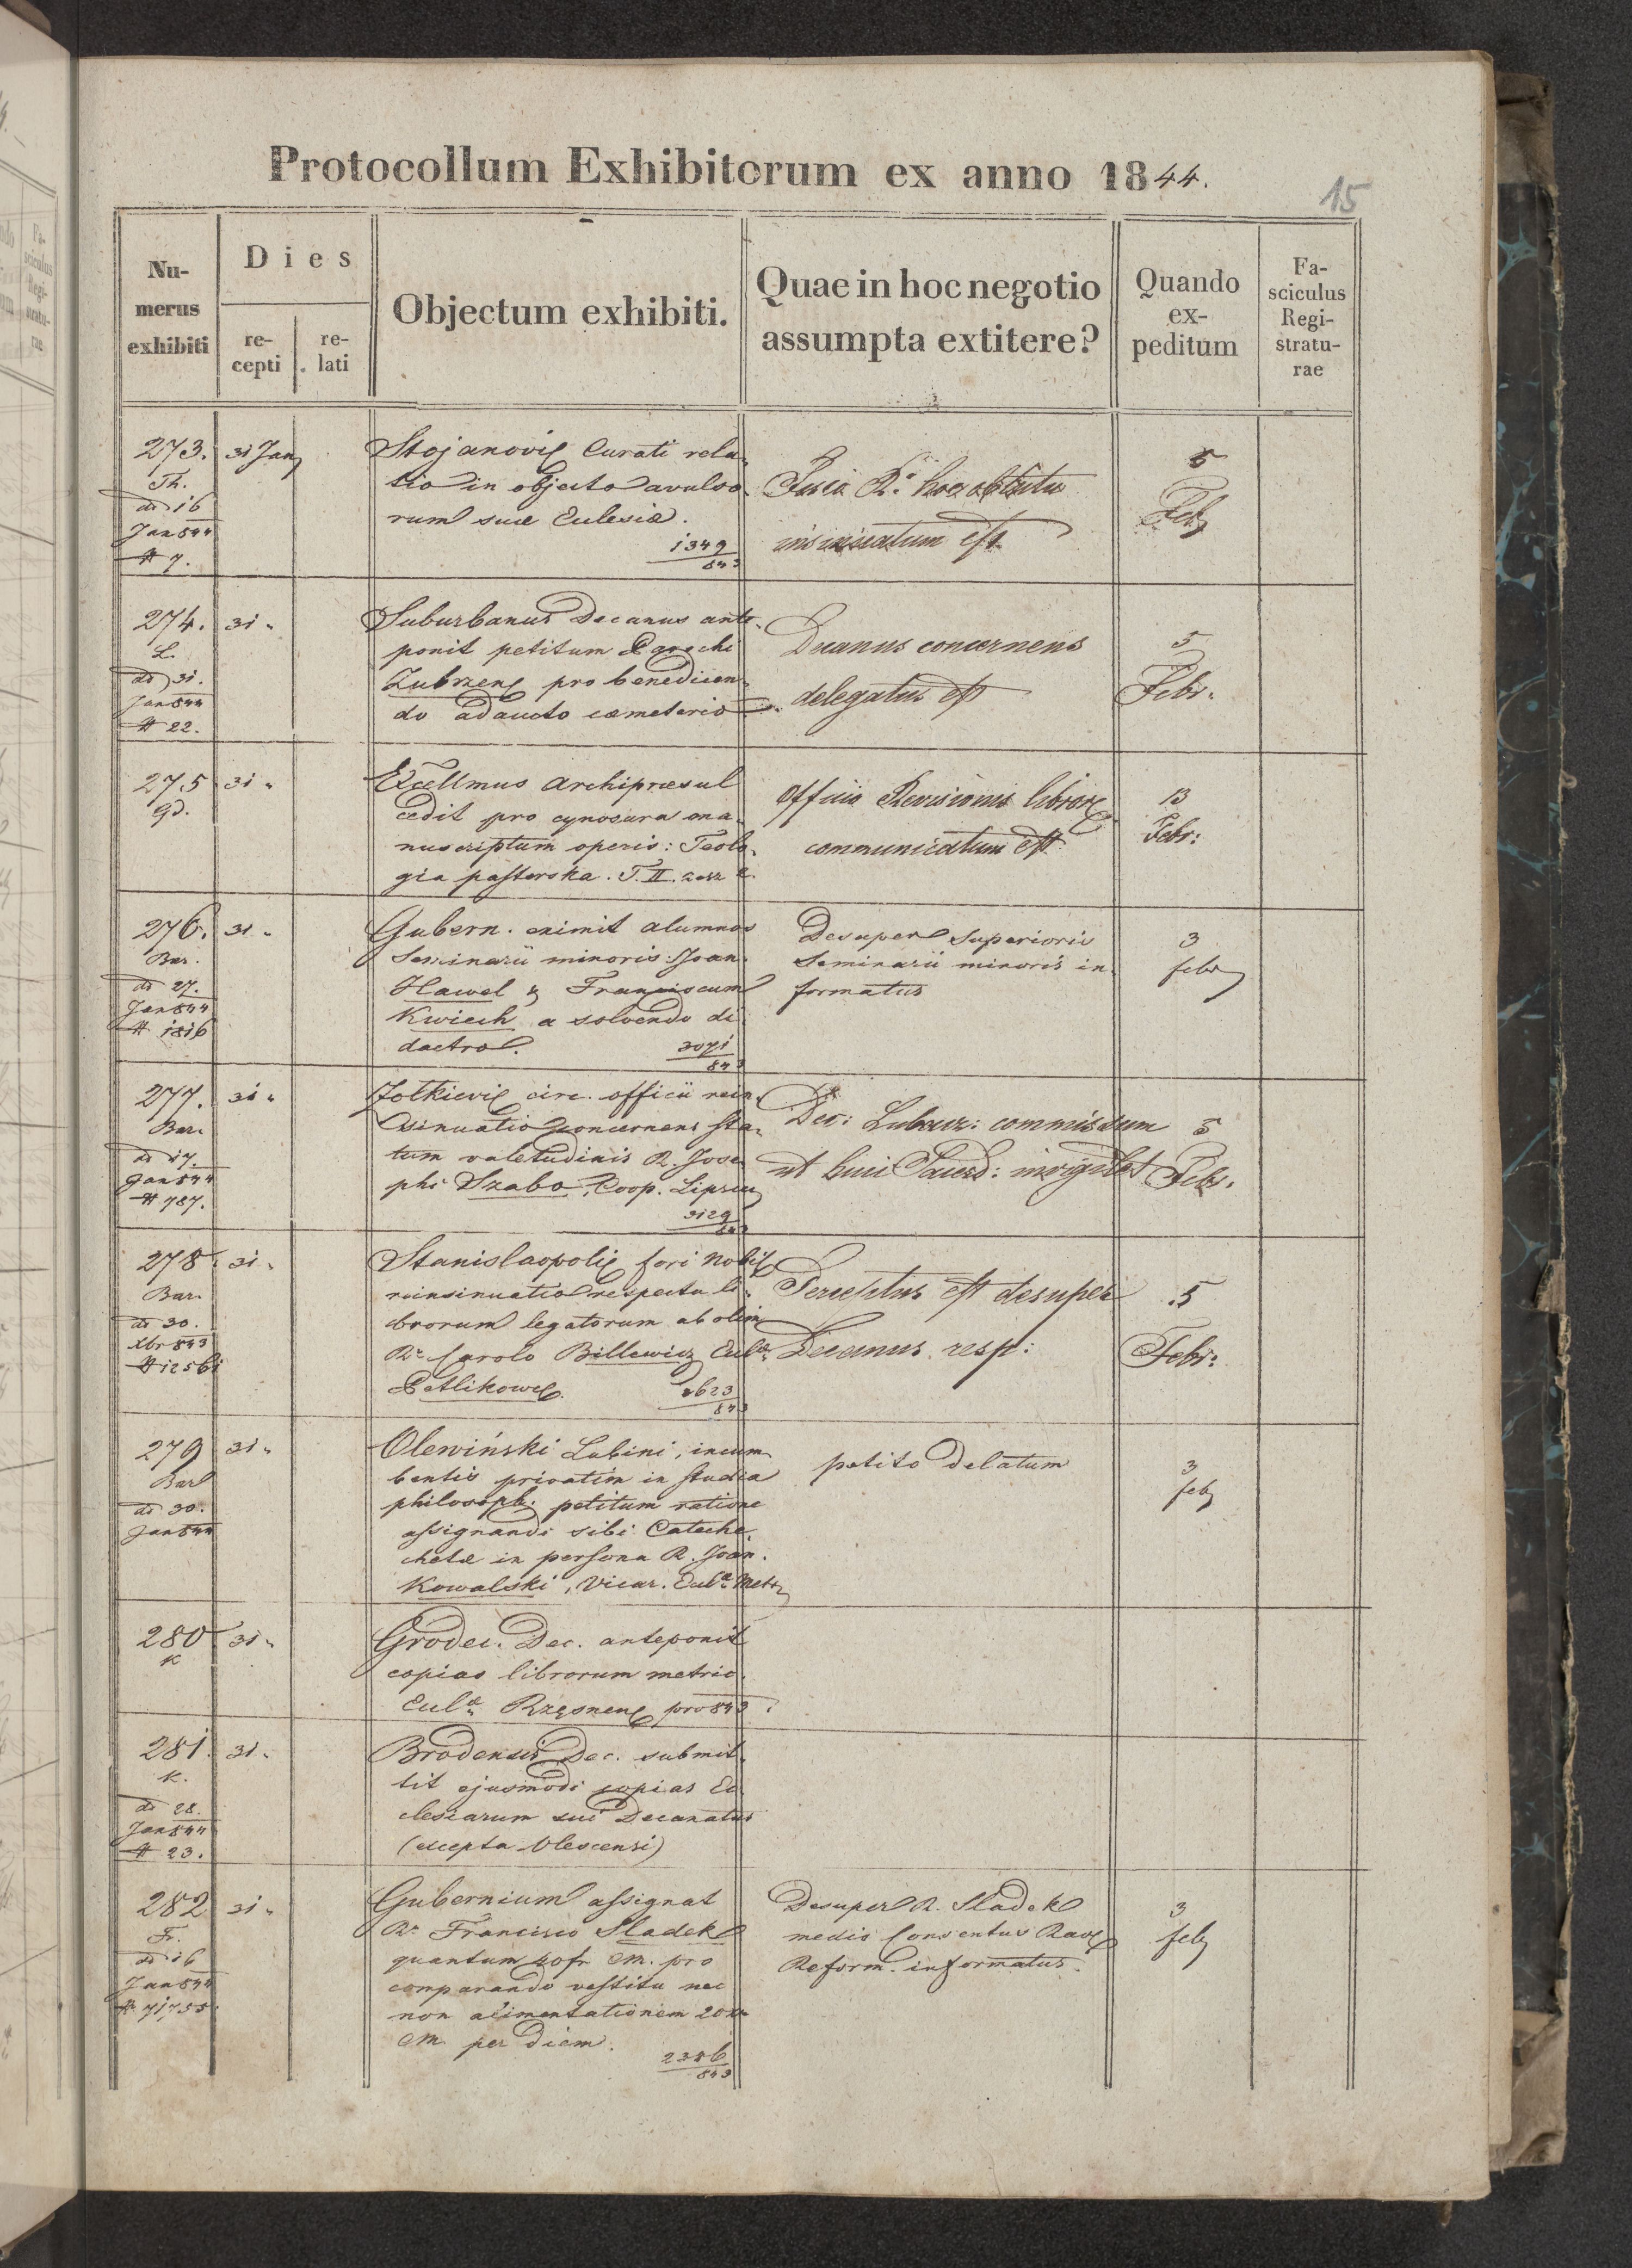 Protocollum Exhibitorum ex anno 1844.
15
Numerus exhibiti
Dies
recepti
relati
Objectum exhibiti.
Quae in hoc negotio
assumpta extitere?
Quando
ex-
peditum
Fa-
sciculus
Regi-
stratu-
rae
273. 31 Jan
Th.
dd 16
Jan 844
# 7.
Stojanovi Curati rela-
tio in objecto avulso-
rum suae Ecclesiae.
1349
843
R. hoc obtutu
insinuatum est
5
Feb
274. 31 "
L.
dd 31.
Jan 844
# 22.
Suburbanus Decanus ante-
ponit petitum Parochi
Zubrzen pro benedicen-
do adaucto caemeterio
Decanus concernens
delegatus est
5
Febr.
275 31 "
Gd.
Excellmus Archipraesul
cedit pro cynosura ma-
nuscriptum operis: Teolo-
gia pasterska. T. II. zesz 2.
Officio Revisionis libror
communicatum est
13
Febr:
276. 31 "
Bar.
dd 27.
Jan 844
# 1816
Gubern. eximit alumnos
Seminarii minoris: Joan.
Hawel & Franciscum
Kwiech a solvendo di-
dactro.
3071
843
Desuper Superioris
Seminarii minoris in-
formatus
3
febr
277. 31 "
Bar.
dd 17.
Jan 844
# 787.
Zolkievi circ. officii rein-
sinuatio concernens sta-
tum valetudinis R. Jose-
phi Szabo, Coop. Lipscen
3129
843
Dec: commissum
ut huic Sacerd: invigilet
5
Febr.
278. 31 "
Bar.
dd 30.
Xbr 843
# 12561
Stanislaopoli fori Nobil
reinsinuatio respectu li-
brorum legatorum ab olim
Rr Carolo Billewicz Eccl
Petlikow.
2623
843
Percepturus est desuper
Decanus resp:
5
Febr:
279 31 "
Bar
dd 30.
Jan 844
Olewiński Lubini, incum-
bentis privatim in studia
philosoph. petitum ratione
assignandi sibi Cateche-
chetae in persona R. Joan.
Kowalski, Vicar. Eccl. Metr
petito delatum
3
feb
280 31 "
K
Grodec. Dec. anteponit
copias librorum metric.
Eccl Rzęsnen pro 843
281. 31 "
K.
dd 28.
Jan 844
# 23.
Brodensis Dec. submit-
tit ejusmodi copias Ec-
clesiarum sui Decanatus
(excepta Olescensi)
282 31 "
Fr.
dd 16
Jan 844
# 71755
Gubernium assignat
Rr Francisco Sladek
quantum 40 fr CM. pro
comparando vestitu nec
non alimentationem 20 xr
CM. per diem.
2386
843
Desuper R. Sladek
medio Conventus Rav
Reform. informatus.
3
feb